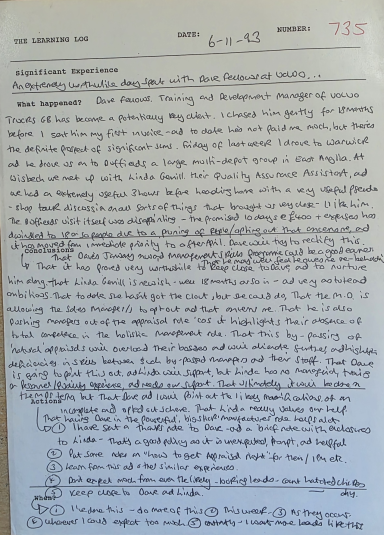 THE LEARNING LOG DATE: 6-11-93 NUMBER: 735
Significant Experience
An extremely worthwhile day spent with Dave Fellows at Volvo...
What happened? Dave Fellows, Training and Development Manager of Volvo
Trucks GB has become a potentially key client. I chased him gently for 18 months
before I sent him my first invoice - and to date he's not paid me much, but there's
the definite prospect of significant sums. Friday of last week I drove to Warwick
and he drove us on to Duffields a large multi-depot group in East Anglia. At
Wisbech we met up with Linda Gemill, their Quality Assurance Assistant, and
we had an extremely useful 3 hours before heading home with a very useful pseudo
-shop tour discussion and sorts of things that brought us very close - I like him.
The Duffields visit itself was disappointing - the promised 10 days @ £400 + expenses has
dwindled to people due to a pruning of people/opting out that once more, and
it has moved from immediate priority to after April. Dave was to rectify this
Conclusions
That Dave's award management skills programme could be a good earner
That it has proved very worthwhile to keep close to Dave and to nurture
him along that Linda Gemill is newish - well 18 months or so in - and very astute and
ambitious. That to date she hasn't got the clout, but she could do, That the M.D. is
allowing the Sales Managers to opt out and that concerns me. That he is also
pushing managers out of the appraisal role 'cos it highlights their absence of
total competence in the holistic management role. That this by-passing of
natural appraisals will overload their bosses and will alienate further and highlight
deficiencies in skills between such by-passed managers and their staff. That Dave
is going to point this out, and Linda will support, but Linda has no managerial, training
or Personnel experience, and needs our support. That ultimately it will be done in
Actions
incomplete and opted out scheme. That Linda really values our help
That having Dave in the powerful, big truck manufacturer role helps a lot.
① I have sent a thank's note to Dave - and a brief note with enclosures
to Linda - that's a good policy as it is unexpected, prompt, and helpful
② Put some notes in "how to get Appraisal Right" for them / I'm etc.
③ Learn from this and other similar experiences.
④ Don't expect much from even the likely-looking leads - count hatched chickens only.
⑤ Keep close to Dave and Linda.
When?
① I've done this - do more of this ② This week - ③ As they occur.
④ whenever I could expect too much ⑤ constantly - I want more leads like this